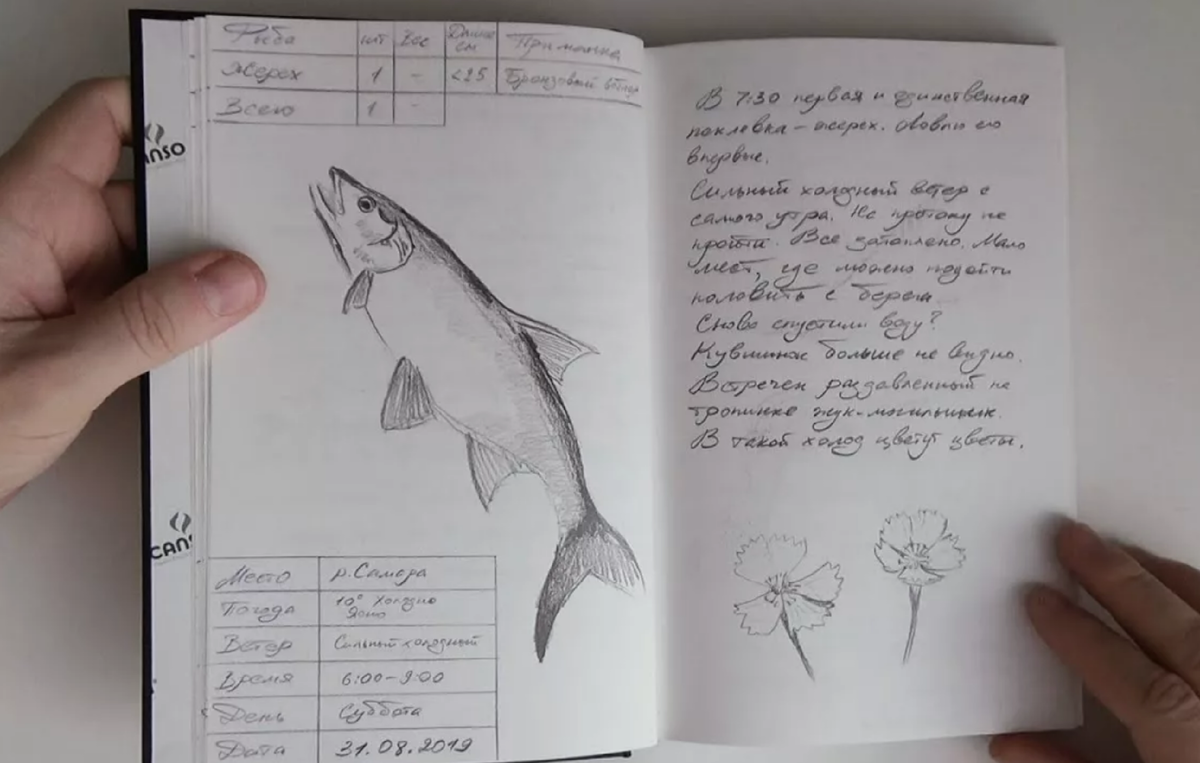 Рыба шт Вес Длина см Приманка
Жерех 1 - <25 Бронзовый
Всего 1 -
Место р. Самара
Погода 10° Холодно
Ясно
Ветер Сильный холодный
Время 6:00-9:00
День Суббота
Дата 31.08.2019
ANSO
CANS
В 7:30 первая и единственная
поклевка – жерех. Ловлю его
впервые.
Сильный холодный ветер с
самого утра. На протоку не
пройти. Все затоплено. Мало
мест, где можно подойти
половить с берега.
Снова спустили воду?
Кувшинок больше не видно.
Встречен раздавленный на
тропинке жук-могильщик.
В такой холод цветут цветы.